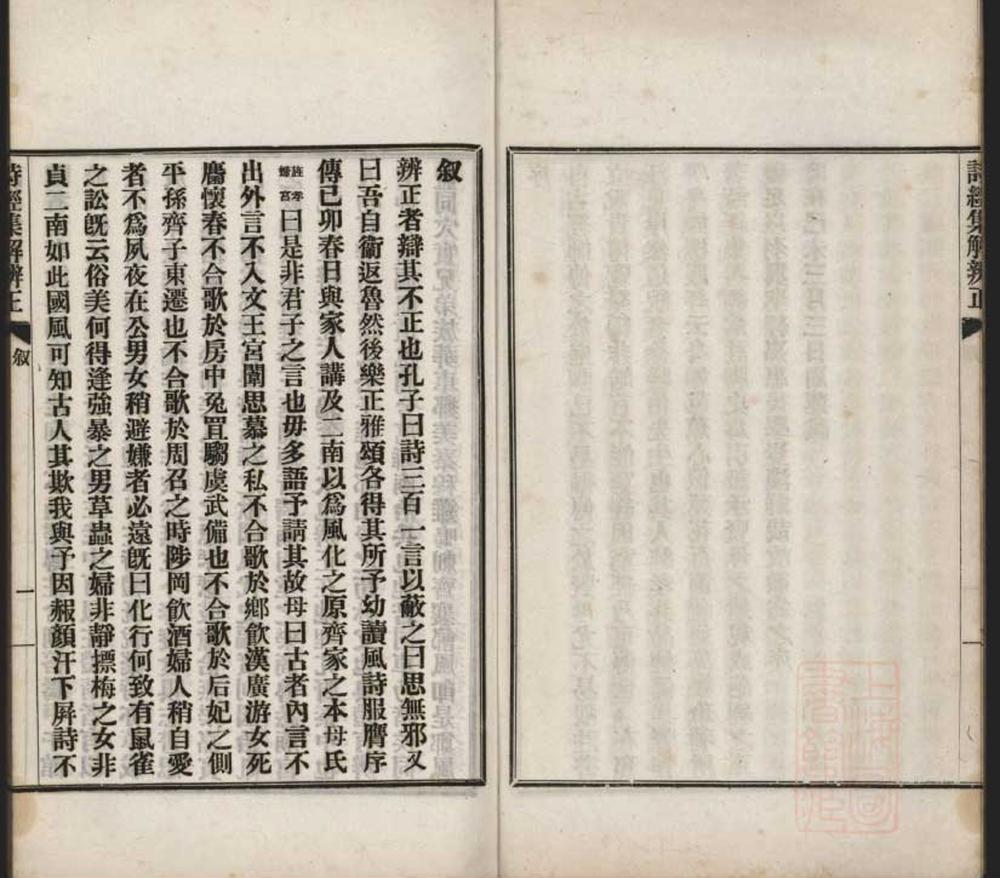 詩經集解辨正
一
叙
辨正者辯其不正也孔子曰詩三百一言以蔽之曰思無邪又
曰吾自衞返魯然後樂正雅頌各得其所予幼讀風詩服膺序
傳己卯春日與家人講及二南以爲風化之原齊家之本母氏
曰是非君子之言也毋多語予請其故母曰古者內言不
出外言不入文王宮闈思慕之私不合歌於鄉飮漢廣游女死
麕懷春不合歌於房中兔罝騶虞武備也不合歌於后妃之側
平孫齊子東遷也不合歌於周召之時陟岡飮酒婦人稍自愛
者不爲夙夜在公男女稍避嫌者必遠旣曰化行何致有鼠雀
之訟旣云俗美何得逢強暴之男草蟲之婦非靜摽梅之女非
貞二南如此國風可知古人其欺我與予因赧顏汗下屛詩不
詩經集解辨正
叙
一